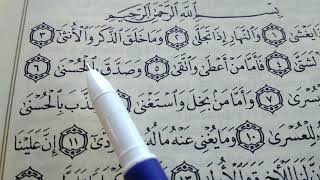 بِسْمِ اللَّهِ الرَّحْمَٰنِ الرَّحِيمِ
يَغْشَىٰ ١ وَالنَّهَارِ إِذَا تَجَلَّىٰ ٢ وَمَا خَلَقَ الذَّكَرَ وَالْأُنثَىٰ ٣
لَشَتَّىٰ ٤ فَأَمَّا مَنْ أَعْطَىٰ وَاتَّقَىٰ ٥ وَصَدَّقَ بِالْحُسْنَىٰ ٦
لِلْيُسْرَىٰ ٧ وَأَمَّا مَنْ بَخِلَ وَاسْتَغْنَىٰ وَكَذَّبَ بِالْحُسْنَىٰ
لِلْعُسْرَىٰ ١٠ وَمَا يُغْنِي عَنْهُ مَالُهُ ١١ إِنَّ عَلَيْنَا